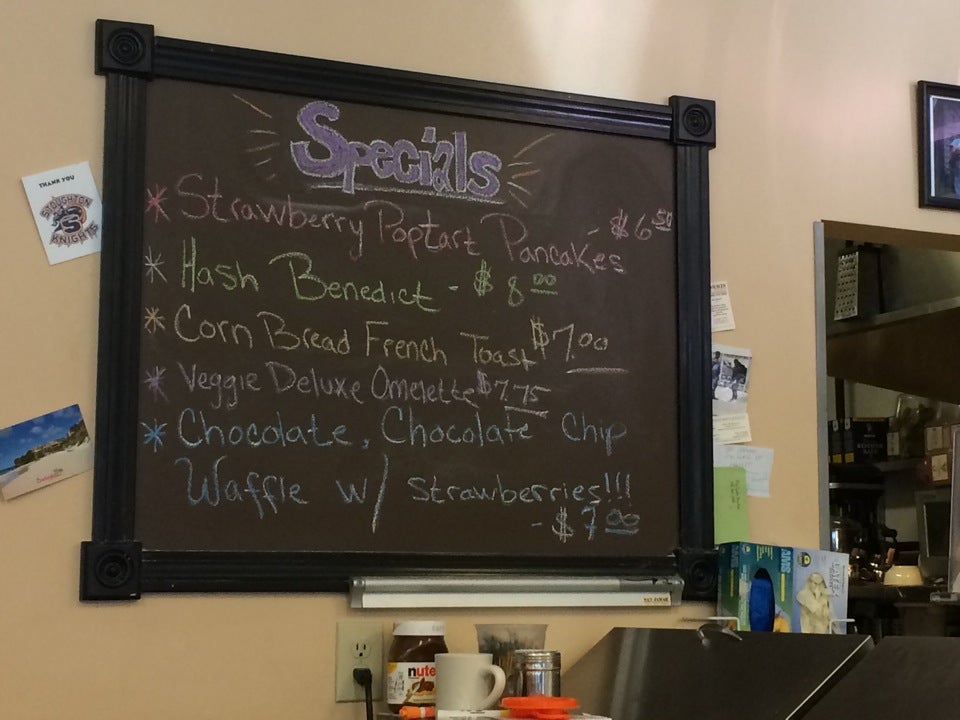 Specials
* Strawberry Poptart Pancakes - $6.50
* Hash Benedict - $8.00
* Corn Bread French Toast $7.00
* Veggie Deluxe Omelette $7.75
* Chocolate, Chocolate Chip
Waffle w/ strawberries!!!
- $7.00
THANK YOU
STOUGHTON
KNIGHTS
nute